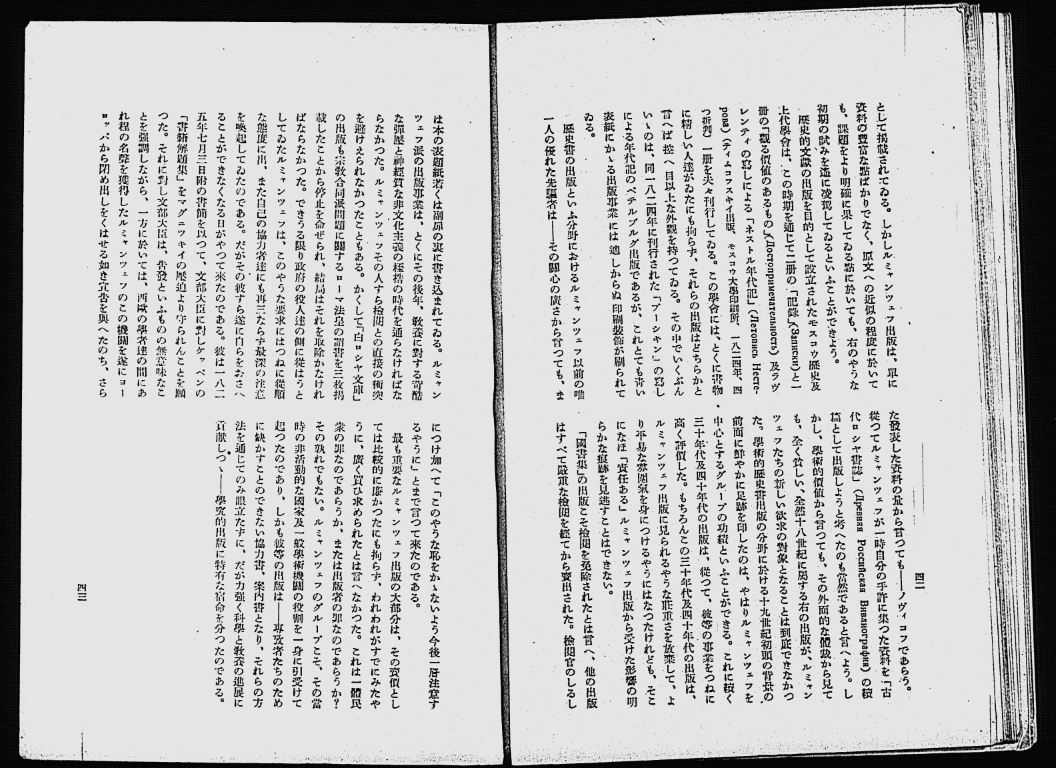 として掲載されてゐる。しかしルミャンツェフ出版は、單に
資料の豐富な點ばかりでなく、原文への近似の程度に於いて
も、課題をより明確に果してゐる點に於いても、右のやうな
初期の試みを遙に凌駕してゐるといふことができよう。
歷史的文獻の出版を目的として設立されたモスコウ歷史及
上代學會は、この時期を通じて二册の「記錄」(Записки)と一
册の「觀る價値のあるもの」(Достопримечательность)及ラヴ
レンティの寫しによる「ネストル年代記」(Летопись Несте-
рова)(ティムコフスキイ出版、モスコウ大學印刷所、一八二四年、四
つ折判)一册を夫々刊行してゐる。この學會には、とくに書物
に精しい人達がゐたにも拘らず、それらの出版はどちらかと
言へば拙く、目以上な外觀を持つてゐる。その中でいくぶん
いゝのは、同一八二四年に刊行された「プーシキン」の寫し
による年代記のペテルブルグ出版であるが、これとても靑い
表紙にかゝる出版事業には適しからぬ印刷裝飾が刷られて
ゐる。
歷史書の出版といふ分野におけるルミャンツェフ以前の唯
一人の優れた先驅者は——その關心の廣さから言つても、ま
た發表した資料の量から言つても——ノヴィコフであらう。
從つてルミャンツェフが一時自分の手許に集つた資料を「古
代ロシヤ書誌」(Древняя Российская Вивлиография)の續
篇として出版しようと考へたのも當然であると言へよう。し
かし、學術的價値から言つても、その外面的な體裁から見て
も、全く貧しい、全然十八世紀に屬する右の出版が、ルミャン
ツェフたちの新しい欲求の對象となることは到底できなかつ
た。學術的歷史書出版の分野に於ける十九世紀初頭の背景の
前面に鮮やかに足跡を印したのは、やはりルミャンツェフを
中心とするグループの功績といふことができる。これに續く
三十年代及四十年代の出版は、從つて、彼等の事業をつねに
高く評價した。もちろんこの三十年代及四十年代の出版は、
ルミャンツェフ出版に見られるやうな莊重さを放棄して、よ
り平易な雰圍氣を身につけるやうにはなつたけれども、そこ
になほ「責任ある」ルミャンツェフ出版から受けた影響の明
らかな痕跡を見逃すことはできない。
「國書集」の出版こそ檢閱を免除されたとは言へ、他の出版
はすべて嚴重な檢閱を經てから賣出された。檢閱官のしるし
四二
は本の表題紙若くは副扉の裏に書き込まれてゐる。ルミャン
ツェフ派の出版事業は、とくにその後年、敎養に對する苛酷
な彈壓と神經質な非文化主義の桎梏の時代を通らなければな
らなかつた。ルミャンツェフその人すら檢閱との直接の衝突
を避けえられなかつたこともある。かくして「白ロシヤ文庫」
の出版も宗敎合同派問題に關するローマ法皇の詔書を三枚揭
載したことから停止を命ぜられ、結局はそれを取除かなけれ
ばならなかつた。できうる限り政府の役人達の側に從はうと
してゐたルミャンツェフは、このやうな要求にはつねに從順
な態度に出、また自己の協力者達にも再三ならず最深の注意
を喚起してゐたのである。だがその彼すら遂に自らをおさへ
ることができなくなる日がやつて來たのである。彼は一八二
五年七月三日附の書簡を以つて、文部大臣に對しケッペンの
「書籍解題集」をマグニツキイの壓迫より守られんことを願
つた。それに對し文部大臣は、告發といふものの無意味なこ
とを强調しながら、一方に於いては、西歐の學者達の間にあ
れ程の名聲を獲得したルミャンツェフのこの機關を遂にヨー
ロッパから閉め出しをくはせる如き宣告を與へたのち、さら
につけ加へて「このやうな恥をかゝないよう今後一層注意す
るやうに」とまで言つて來たのである。
最も重要なルミャンツェフ出版の大部分は、その賣價とし
ては比較的に廉かつたにも拘らず、われわれがすでにみたや
うに、廣く買ひ求められたとは言へなかつた。これは一體民
衆の罪なのであらうか、または出版者の罪なのであらうか?
その孰れでもない。ルミャンツェフのグループこそ、その當
時の非活動的な國家及一般學術機關の役割を一身に引受けて
起つたのであり、しかも彼等の出版は——專攻者たちのため
に缺かすことのできない協力書、案內書となり、それらの方
法を通じてのみ眼立たずに、だが力强く科學と敎養の進展に
貢獻しつゝ——學究的出版に特有な宿命を分つたのである。
四三